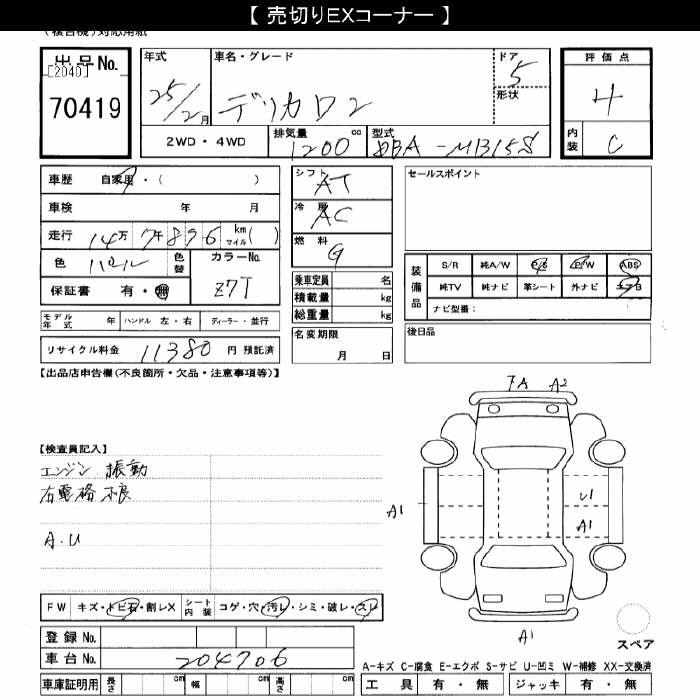 【 売切りEXコーナー 】
(複合機)対応用紙
出品No.
[2040]
70419
年式
25/2月
車名・グレード
デリカD2
ドア
5
形状
評価点
4
内装
C
2WD・4WD
排気量
1200
cc
型式
DBA-MB15S
車歴 自家用・( )
車検 年 月
走行 14万7千896 km マイル( )
色 パール
色替
カラーNo.
Z7T
保証書 有・無
シフト
AT
冷房
AC
燃料
G
乗車定員 名
積載量 kg
総重量 kg
セールスポイント
装備品
S/R 純A/W P/S P/W ABS
純TV 純ナビ 革シート 外ナビ エアB
ナビ型番：
モデル年式 年 ハンドル 左・右 ディーラー・並行
名変期限
月 日
後日品
リサイクル料金 11380 円 預託済
【出品店申告欄(不良箇所・欠品・注意事項等)】
FA A2
【検査員記入】
エンジン 振動
右電格 不良
A.U
A1
U1
A1
A1
FW キズ・トビ石・割レX シート内装 コゲ・穴・汚レ・シミ・破レ・スレ
登録No.
車台No. 204706
スペア
A-キズ C-腐食 E-エクボ S-サビ U-凹ミ W-補修 XX-交換済
車庫証明用 長さ cm 幅 cm 高さ cm
工具 有・無 ジャッキ 有・無